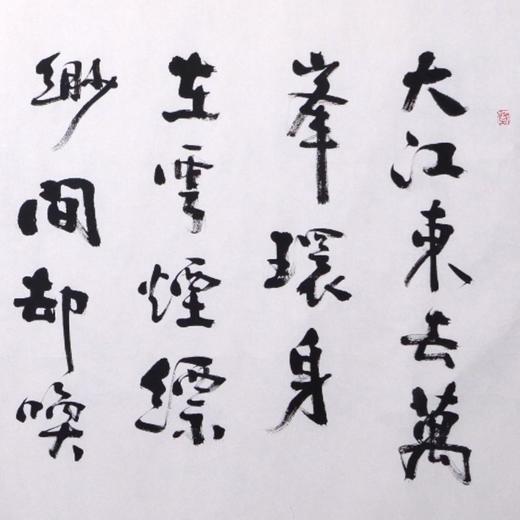 大江東去萬
峯環身
在雲煙縹
緲間却喚